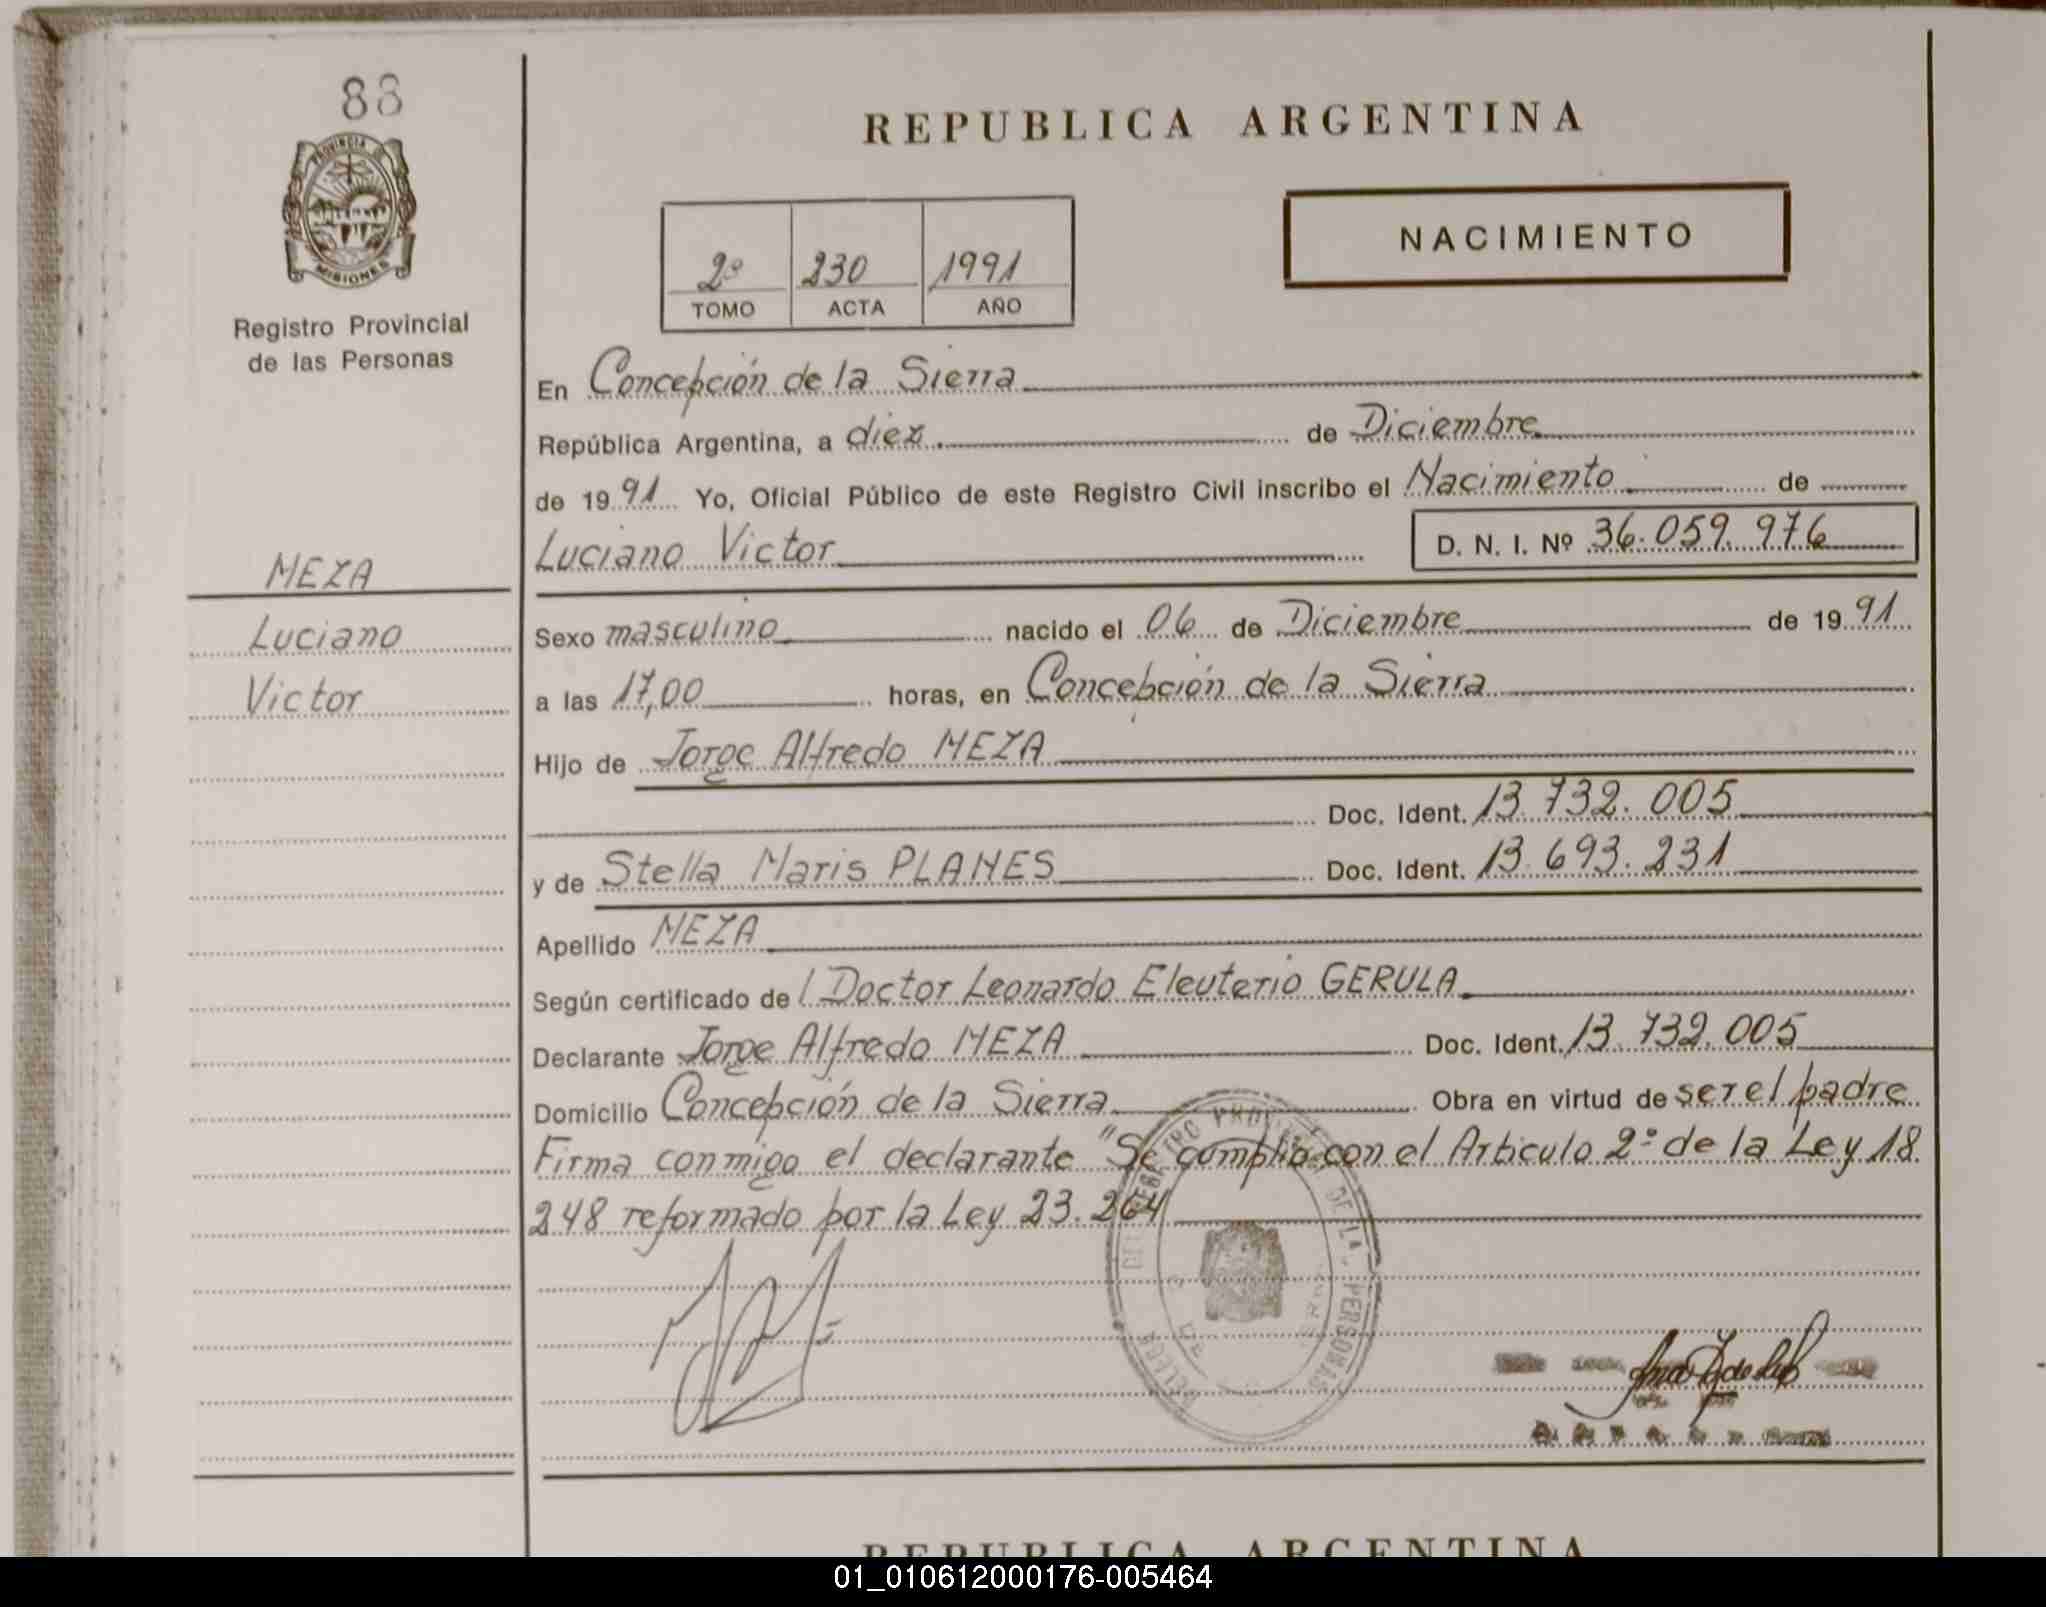 88
PROVINCIA DE
MISIONES
Registro Provincial
de las Personas
MEZA
Luciano
Victor
REPUBLICA ARGENTINA
2º 230 1991
TOMO ACTA AÑO
NACIMIENTO
En Concepción de la Sierra
República Argentina, a diez de Diciembre
de 1991 Yo, Oficial Público de este Registro Civil inscribo el Nacimiento de
Luciano Victor D. N. I. Nº 36.059.976
Sexo masculino nacido el 06 de Diciembre de 1991
a las 17,00 horas, en Concepción de la Sierra
Hijo de Jorge Alfredo MEZA
Doc. Ident. 13.732.005
y de Stella Maris PLANES Doc. Ident. 13.693.231
Apellido MEZA
Según certificado del Doctor Leonardo Eleuterio GERULA
Declarante Jorge Alfredo MEZA Doc. Ident. 13.732.005
Domicilio Concepción de la Sierra Obra en virtud de ser el padre
Firma conmigo el declarante "Se cumplió con el Articulo 2º de la Ley 18
248 reformado por la Ley 23.264
DE LAS PERSONAS
REPUBLICA ARGENTINA
01_010612000176-005464